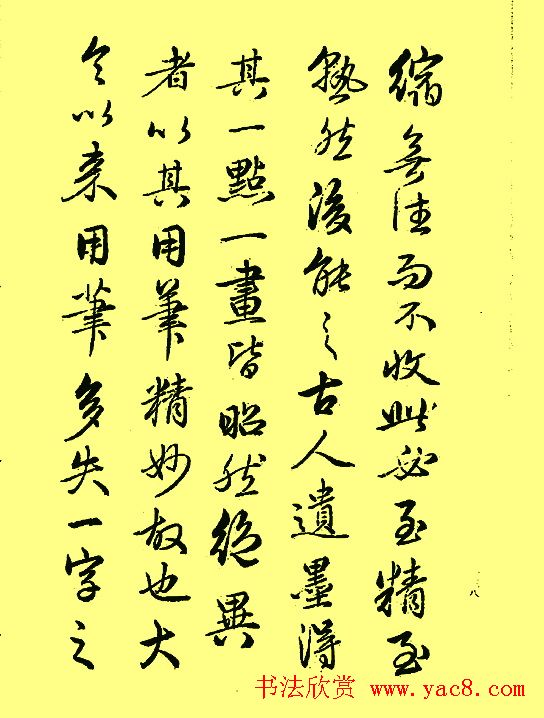 縮無往而不收此必至精至
熟然後能之古人遺墨得
其一點一畫皆昭然絕異
者以其用筆精妙故也大
令以來用筆多失一字之
八
书法欣赏 www.yac8.com